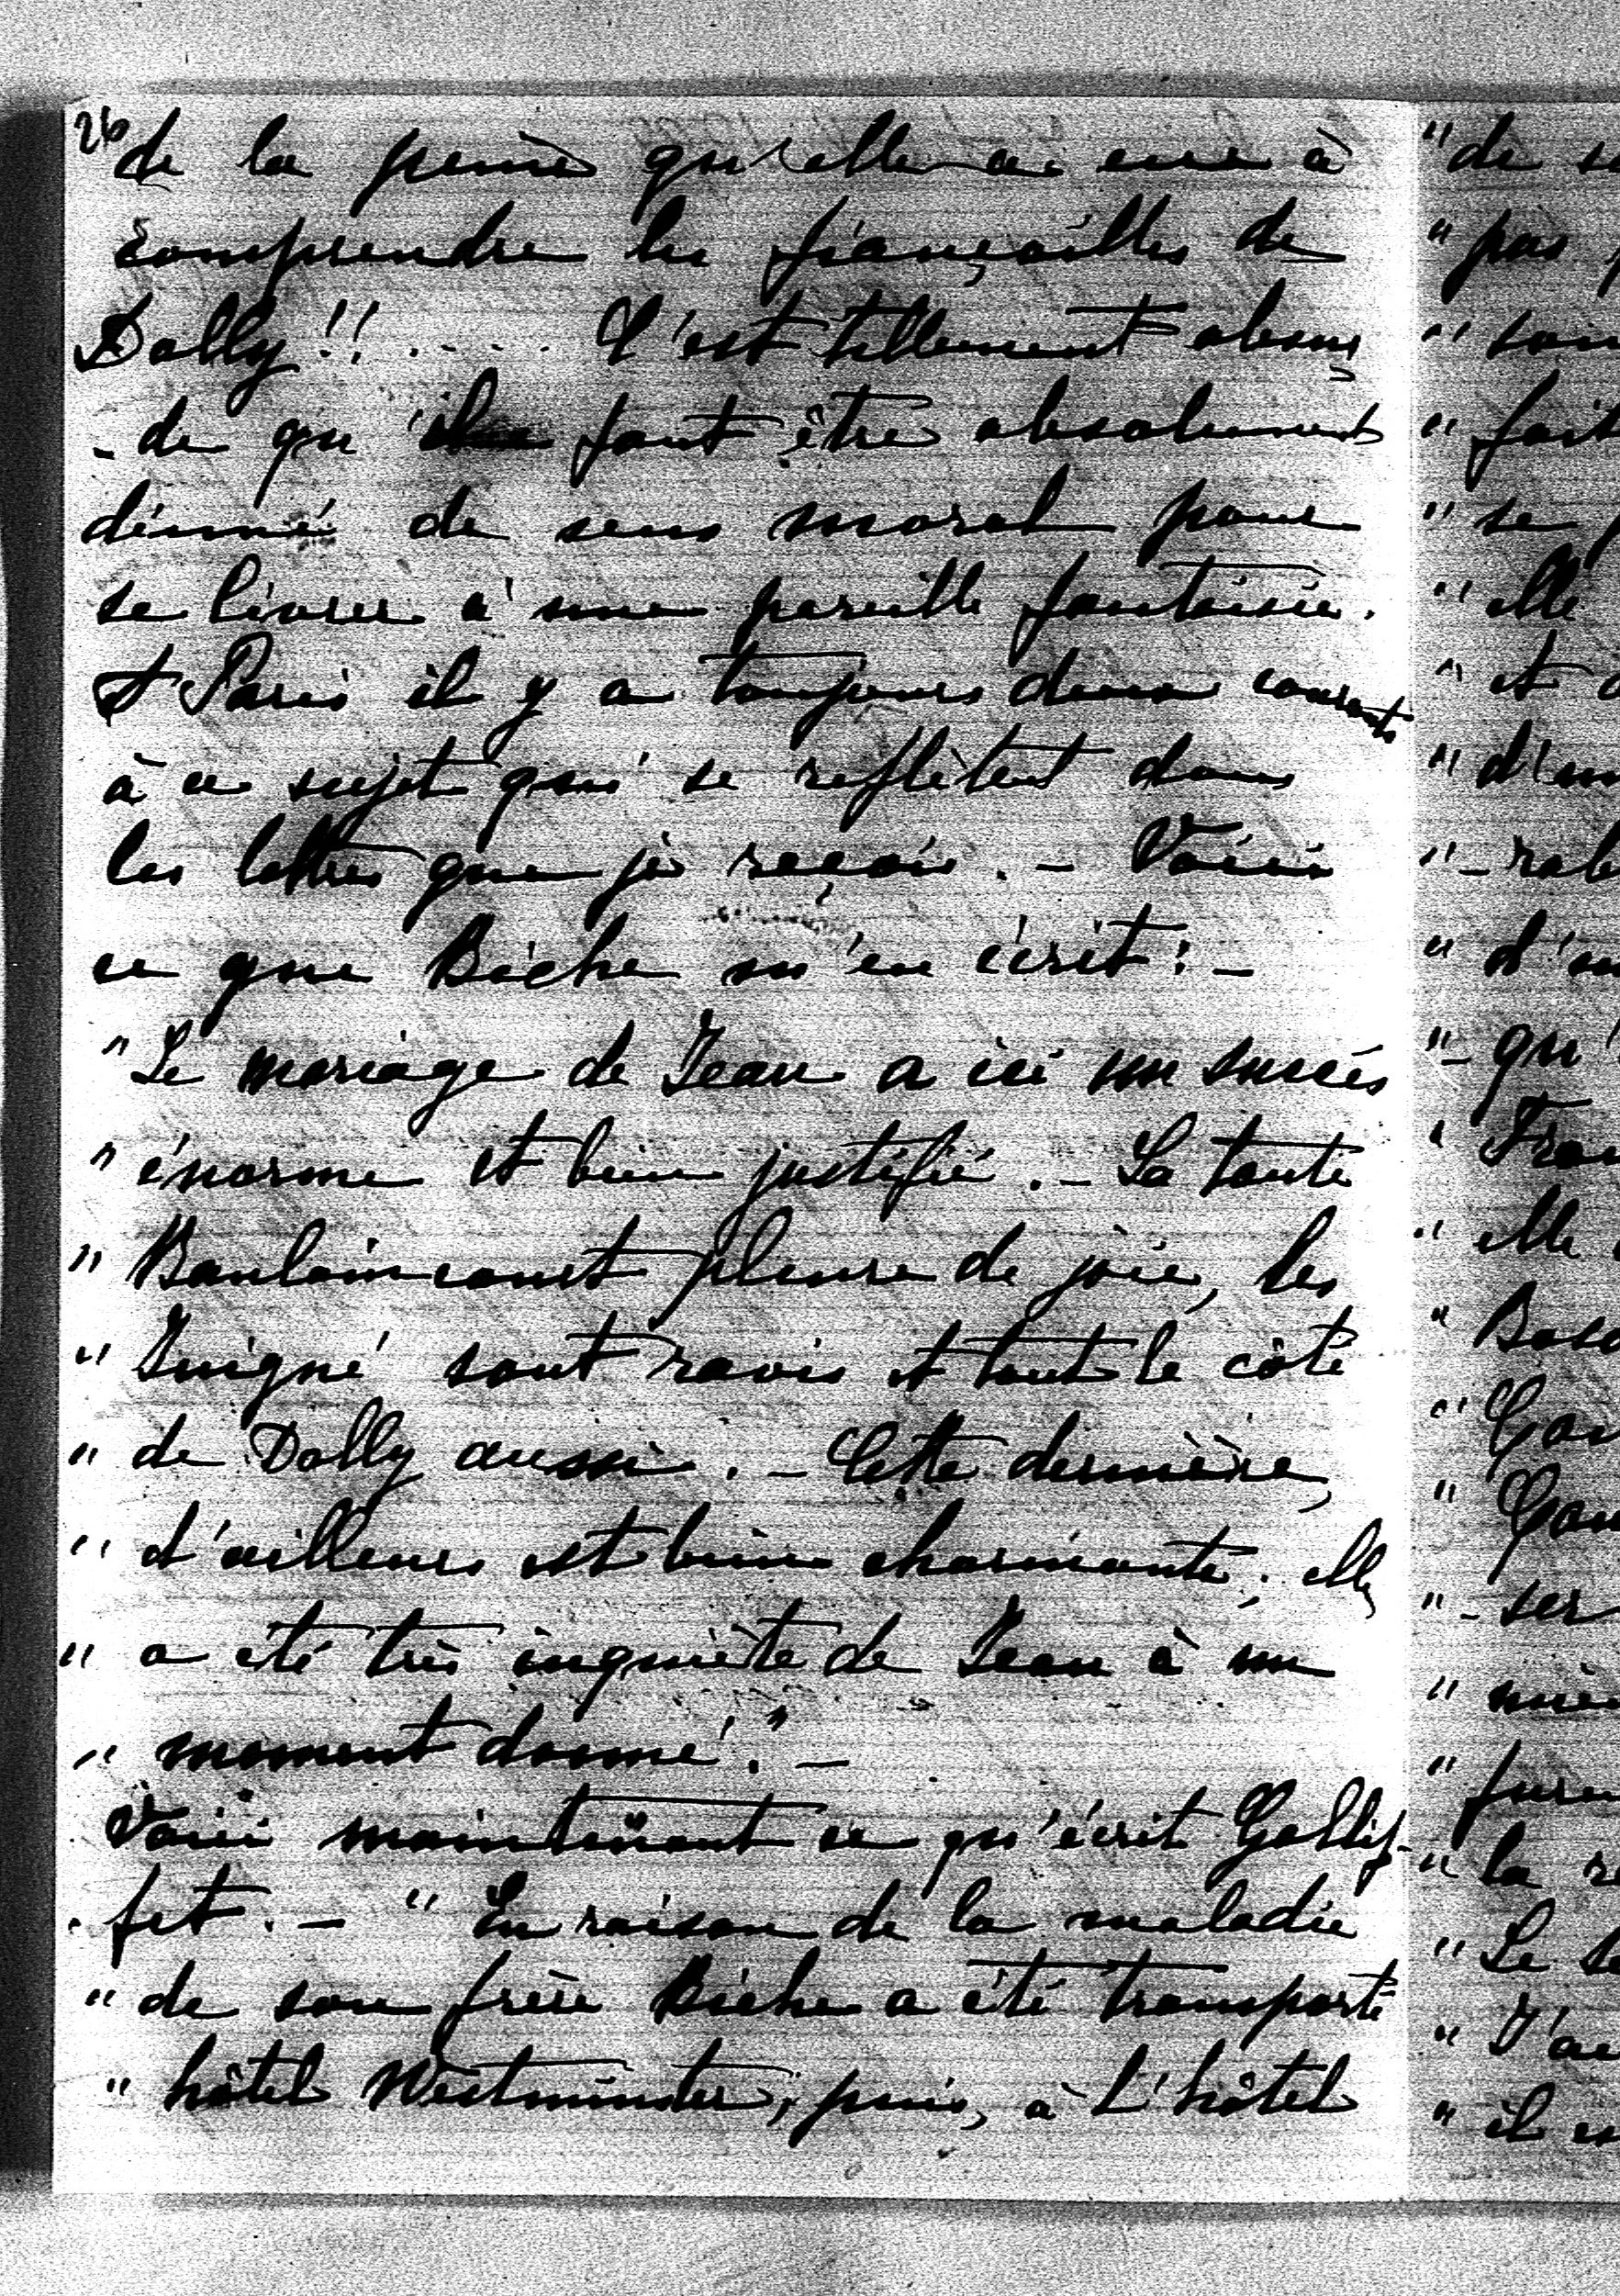 26
de la peine qu'elle a eue à
comprendre les fiançailles de
Dolly!! ..... C'est tellement absur
-de qu'il faut être absolument
dénué de sens moral pour
se livrer à une pareille fantaisie.
A Paris il y a toujours deux courants
à ce sujet qui se reflètent dans
les lettres que je reçois. - Voici
ce que Biche m'en écrit: -
"Le mariage de Jean a ici un succès
"énorme et bien justifié. - La tante
"Baulaincourt pleure de joie, les
"Juigné sont ravis et tout le côté
"de Dolly aussi. - Cette dernière,
"d'ailleurs est bien charmante; elle
"a été très inquiète de Jean à un
"moment donné." -
Voici maintenant ce qu'écrit Gallif-
-fet. - "En raison de la maladie
"de son frère Biche a été transporté
"hôtel Westminster, puis, à l'hôtel
"de
"pas
"
"
"se
"elle
"et
"
"
"
"- qu'
"
"elle
"
"
"
"- ser
"
"
"la
"Le
"J'ai
"il